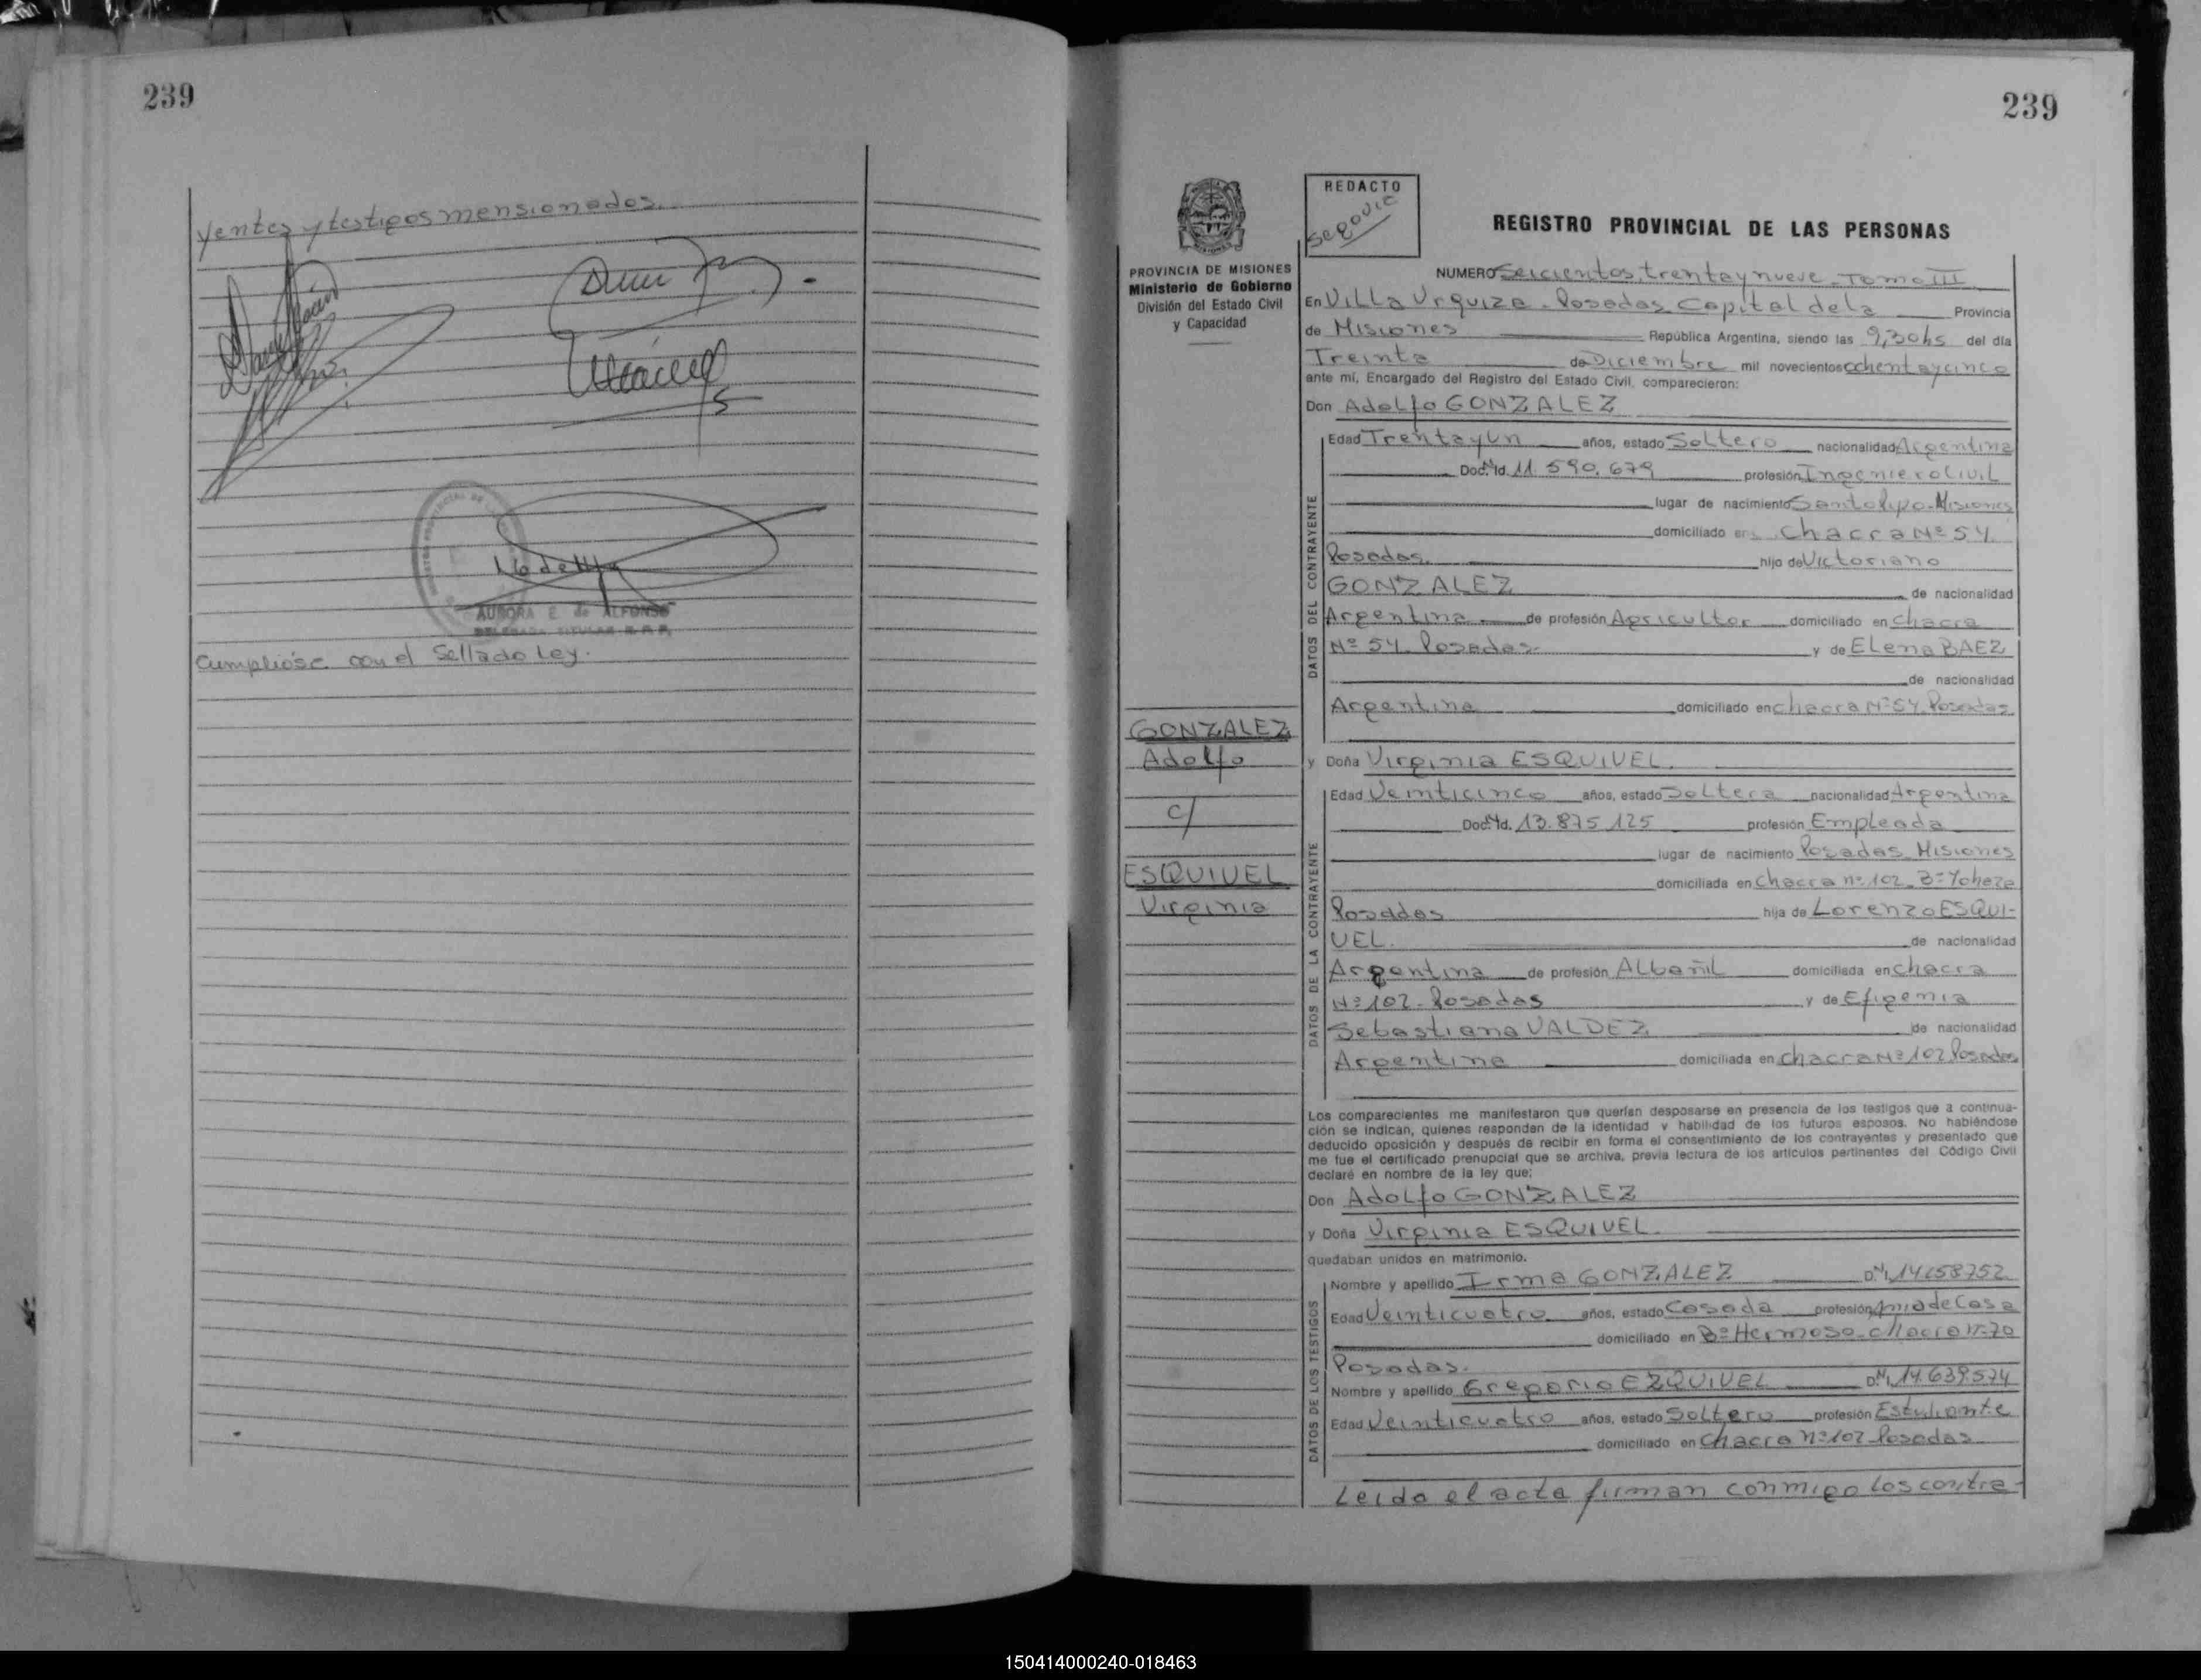 239
yentes y testigos mensionados.
AURORA E. de ALFONSO
DELEGADA TITULAR R.P.P.
Cumplióse con el Sellado Ley.
239
REDACTO
Segovia
REGISTRO PROVINCIAL DE LAS PERSONAS
PROVINCIA DE MISIONES
Ministerio de Gobierno
División del Estado Civil
y Capacidad
NUMERO Seicientos, treinta y nueve. Tomo III
En Villa Urquiza - Posadas Capital de la Provincia
de Misiones República Argentina, siendo las 9,30 hs del día
Treinta de Diciembre mil novecientos ochenta y cinco
ante mí, Encargado del Registro del Estado Civil, comparecieron:
Don Adolfo GONZALEZ
DATOS DEL CONTRAYENTE
Edad Treinta y Un años, estado Soltero nacionalidad Argentina
Doc. Id. 11.590.679 profesión Ingeniero Civil
lugar de nacimiento Santo Pipo-Misiones
domiciliado en Chacra Nº 54
Posadas. hijo de Victoriano
GONZALEZ de nacionalidad
Argentina de profesión Agricultor domiciliado en Chacra
Nº 54. Posadas. y de Elena BAEZ
de nacionalidad
Argentina domiciliado en chacra Nº 54 Posadas
GONZALEZ
Adolfo
c/
ESQUIVEL
Virginia
y Doña Virginia ESQUIVEL.
DATOS DE LA CONTRAYENTE
Edad Veinticinco años, estado Soltera nacionalidad Argentina
Doc. Id. 13.875.125 profesión Empleada
lugar de nacimiento Posadas Misiones
domiciliada en Chacra nº 102. Bº Yohasa
Posadas hija de Lorenzo ESQUI-
VEL. de nacionalidad
Argentina de profesión Albañil domiciliada en chacra
Nº 102. Posadas y de Efigenia
Sebastiana VALDEZ de nacionalidad
Argentina domiciliada en chacra Nº 102 Posadas
Los comparecientes me manifestaron que querían desposarse en presencia de los testigos que a continua-
ción se indican, quienes responden de la identidad y habilidad de los futuros esposos. No habiéndose
deducido oposición y después de recibir en forma el consentimiento de los contrayentes y presentado que
me fue el certificado prenupcial que se archiva, previa lectura de los artículos pertinentes del Código Civil
declaré en nombre de la ley que:
Don Adolfo GONZALEZ
y Doña Virginia ESQUIVEL.
quedaban unidos en matrimonio.
DATOS DE LOS TESTIGOS
Nombre y apellido Irma GONZALEZ DNI 14258752
Edad Veinticuatro años, estado Casada profesión Ama de Casa
domiciliado en Bº Hermoso - chacra Nº 70
Posadas.
Nombre y apellido Gregorio EZQUIVEL DNI 14.639.574
Edad Veinticuatro años, estado Soltero profesión Estudiante
domiciliado en Chacra nº 102 Posadas
Leida el acta firman conmigo los contra-
150414000240-018463